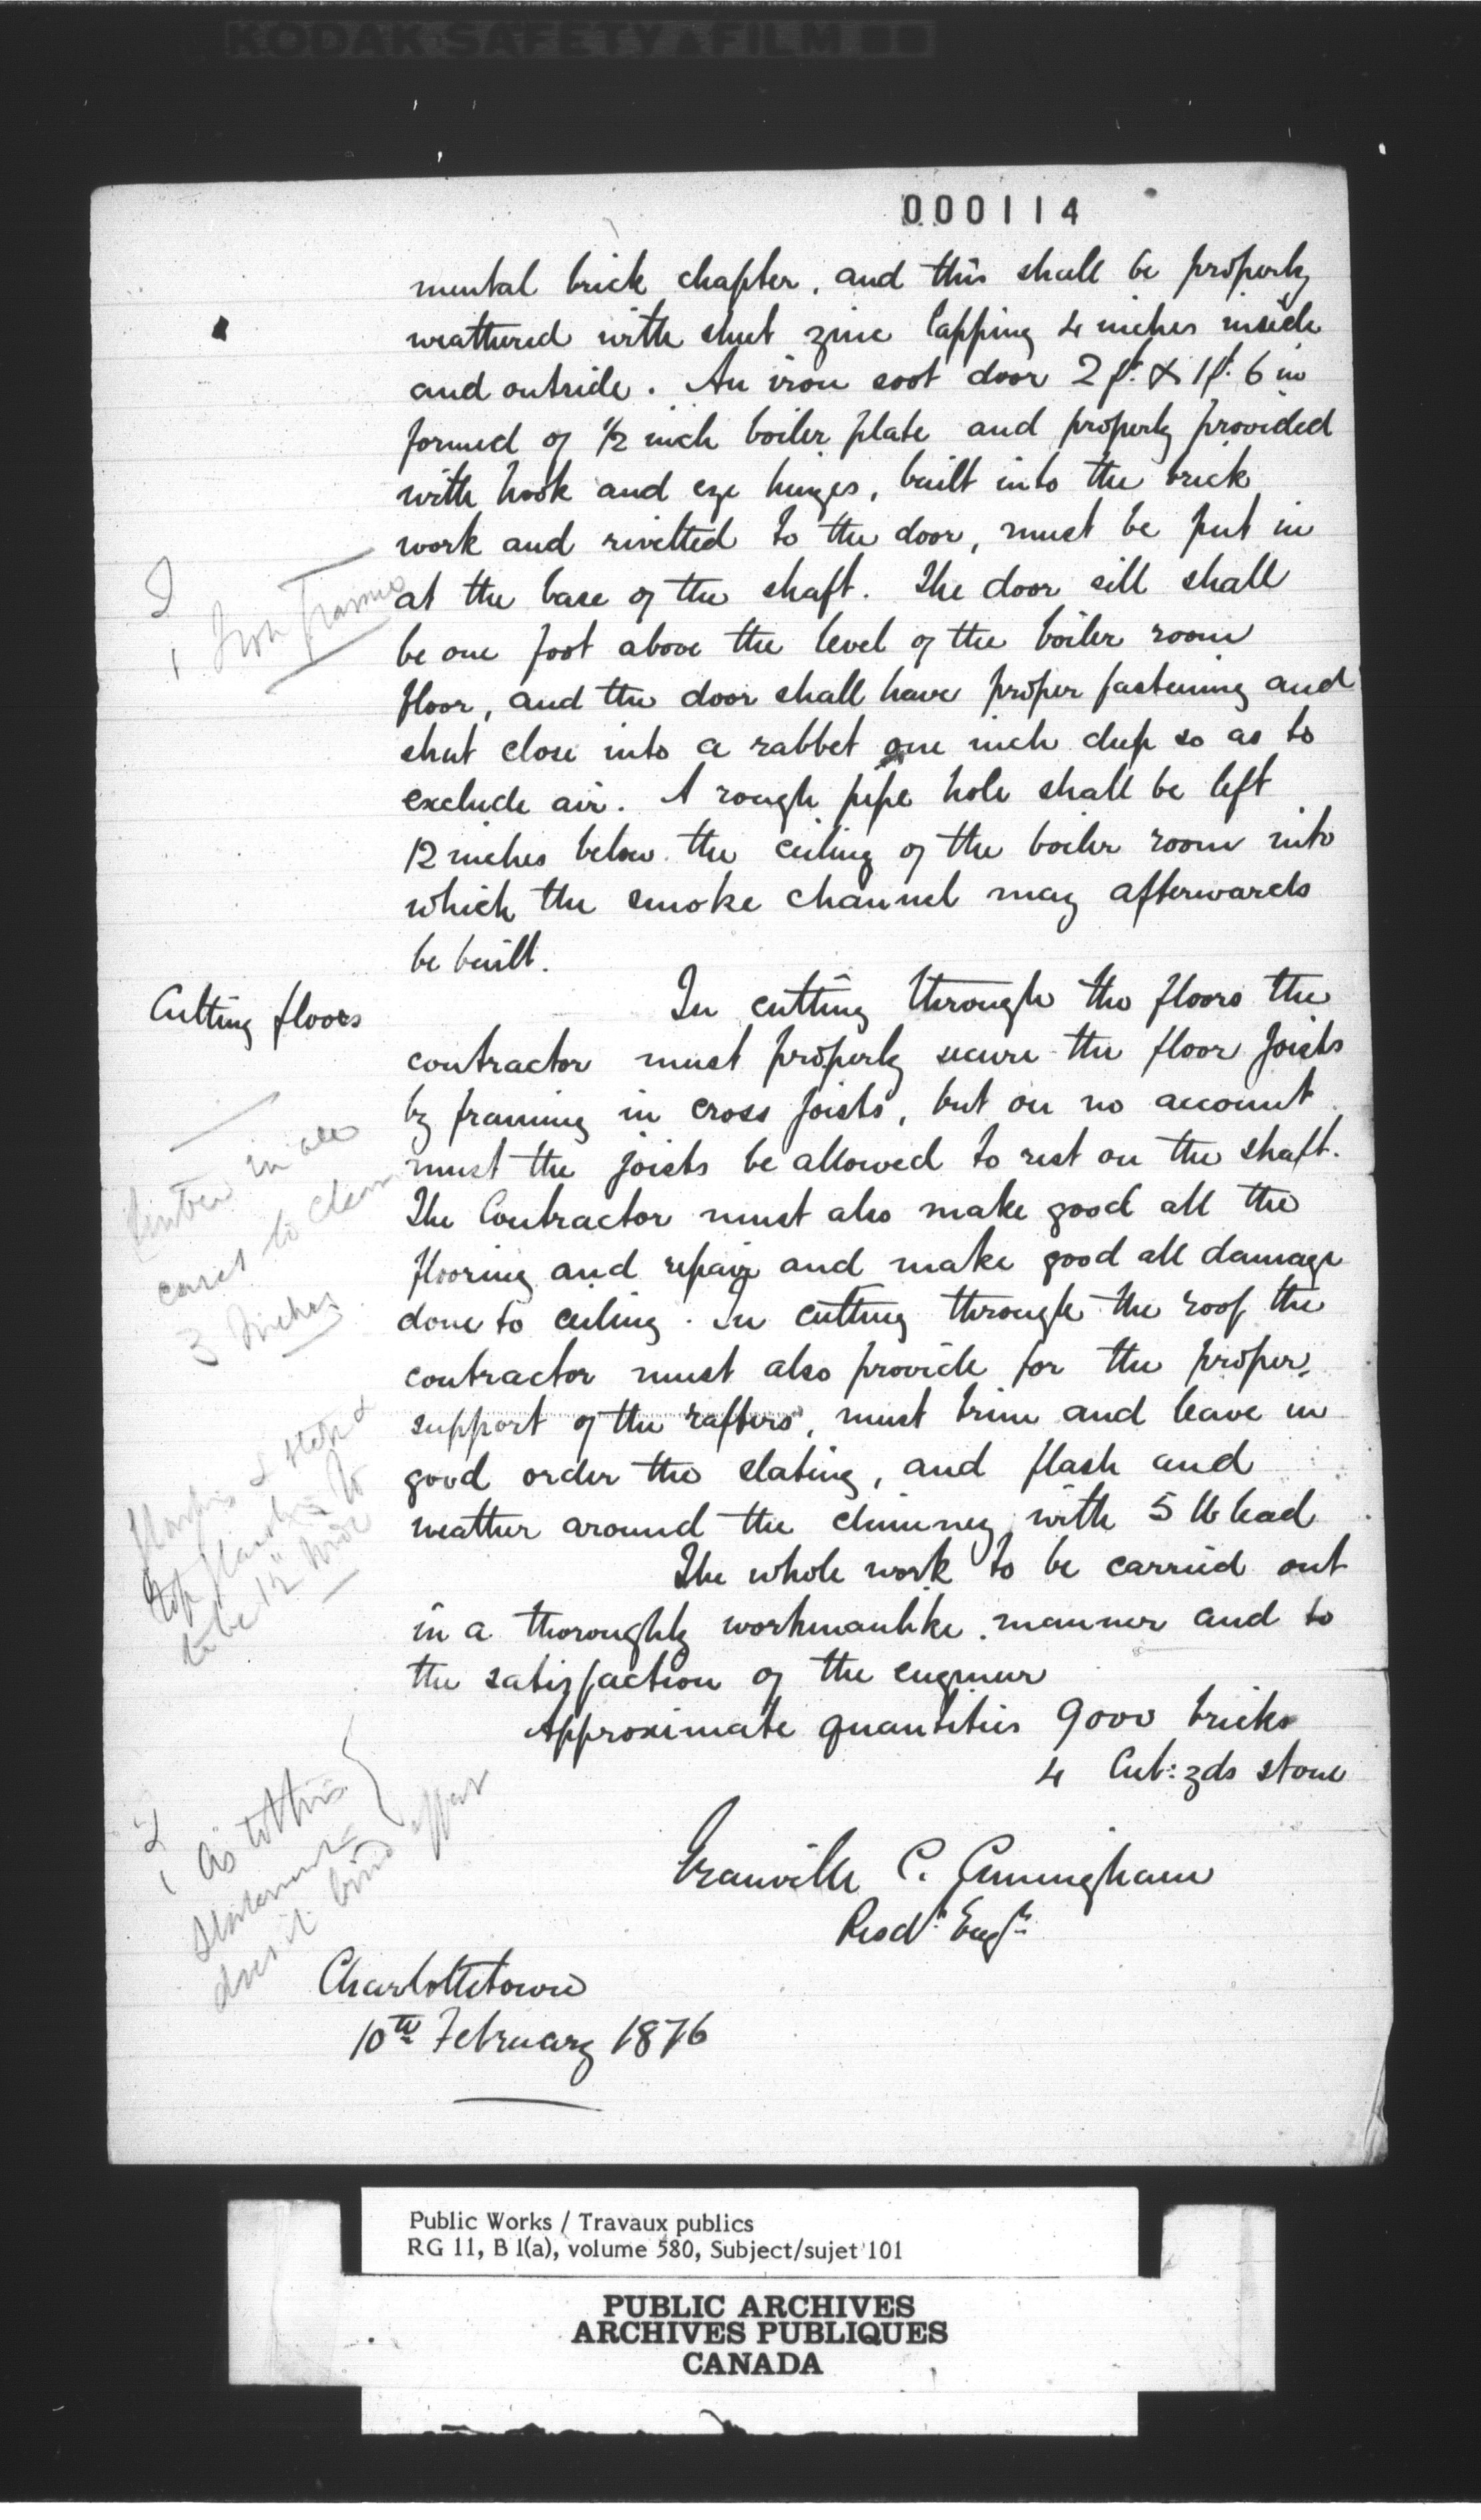 KODAK SAFETY FILM
000114
mental brick chapter, and this shall be properly
weathered with sheet zinc lapping 4 inches inside
and outside. An iron soot door 2 ft. x 1 ft. 6 in
formed of 1/2 inch boiler plate and properly provided
with hook and eye hinges, built into the brick
work and rivetted to the door, must be put in
Iron Frame
at the base of the shaft. The door sill shall
be one foot above the level of the boiler room
floor, and the door shall have proper fastening and
shut close into a rabbet one inch deep so as to
exclude air. A rough pipe hole shall be left
12 inches below the ceiling of the boiler room into
which the smoke channel may afterwards
be built.
Cutting floors
In cutting through the floors the
contractor must properly secure the floor joists
by framing in cross joists, but on no account
must the joists be allowed to rest on the shaft.
The Contractor must also make good all the
flooring and repair and make good all damage
done to ceiling. In cutting through the roof the
contractor must also provide for the proper
support of the rafters, must trim and leave in
good order the slating, and flash and
weather around the chimney with 5 lb lead
Timber in all
cases to clear
3 Inches
to be 12" wide
The whole work to be carried out
in a thoroughly workmanlike manner and to
the satisfaction of the engineer
Approximate quantities 9000 bricks
4 Cub: yds stone
As to this
statement
does it bind
Granville C. Cunningham
Resdt. Engr.
Charlottetown
10th February 1876
Public Works / Travaux publics
RG 11, B 1(a), volume 580, Subject/sujet 101
PUBLIC ARCHIVES
ARCHIVES PUBLIQUES
CANADA